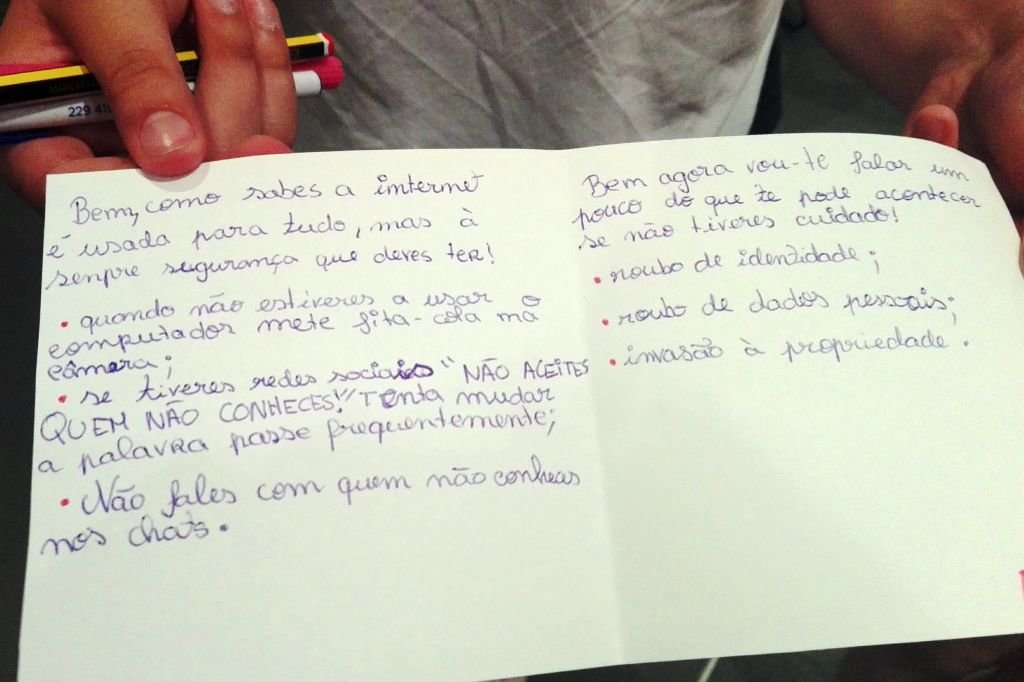 229 41
Bem, como sabes a internet
é usada para tudo, mas à
senpre segurança que deves ter!
• quando não estiveres a usar o
computador mete fita-cola na
câmara;
• se tiveres redes sociais "NÃO ACEITES
QUEM NÃO CONHECES!" Tenta mudar
a palavra passe frequentemente;
• Não fales com quem não conheas
nos chats.
Bem agora vou-te falar um
pouco do que te pode acontecer
se não tiveres cuidado!
• roubo de identidade;
• roubo de dados pessoais;
• invasão à propriedade.